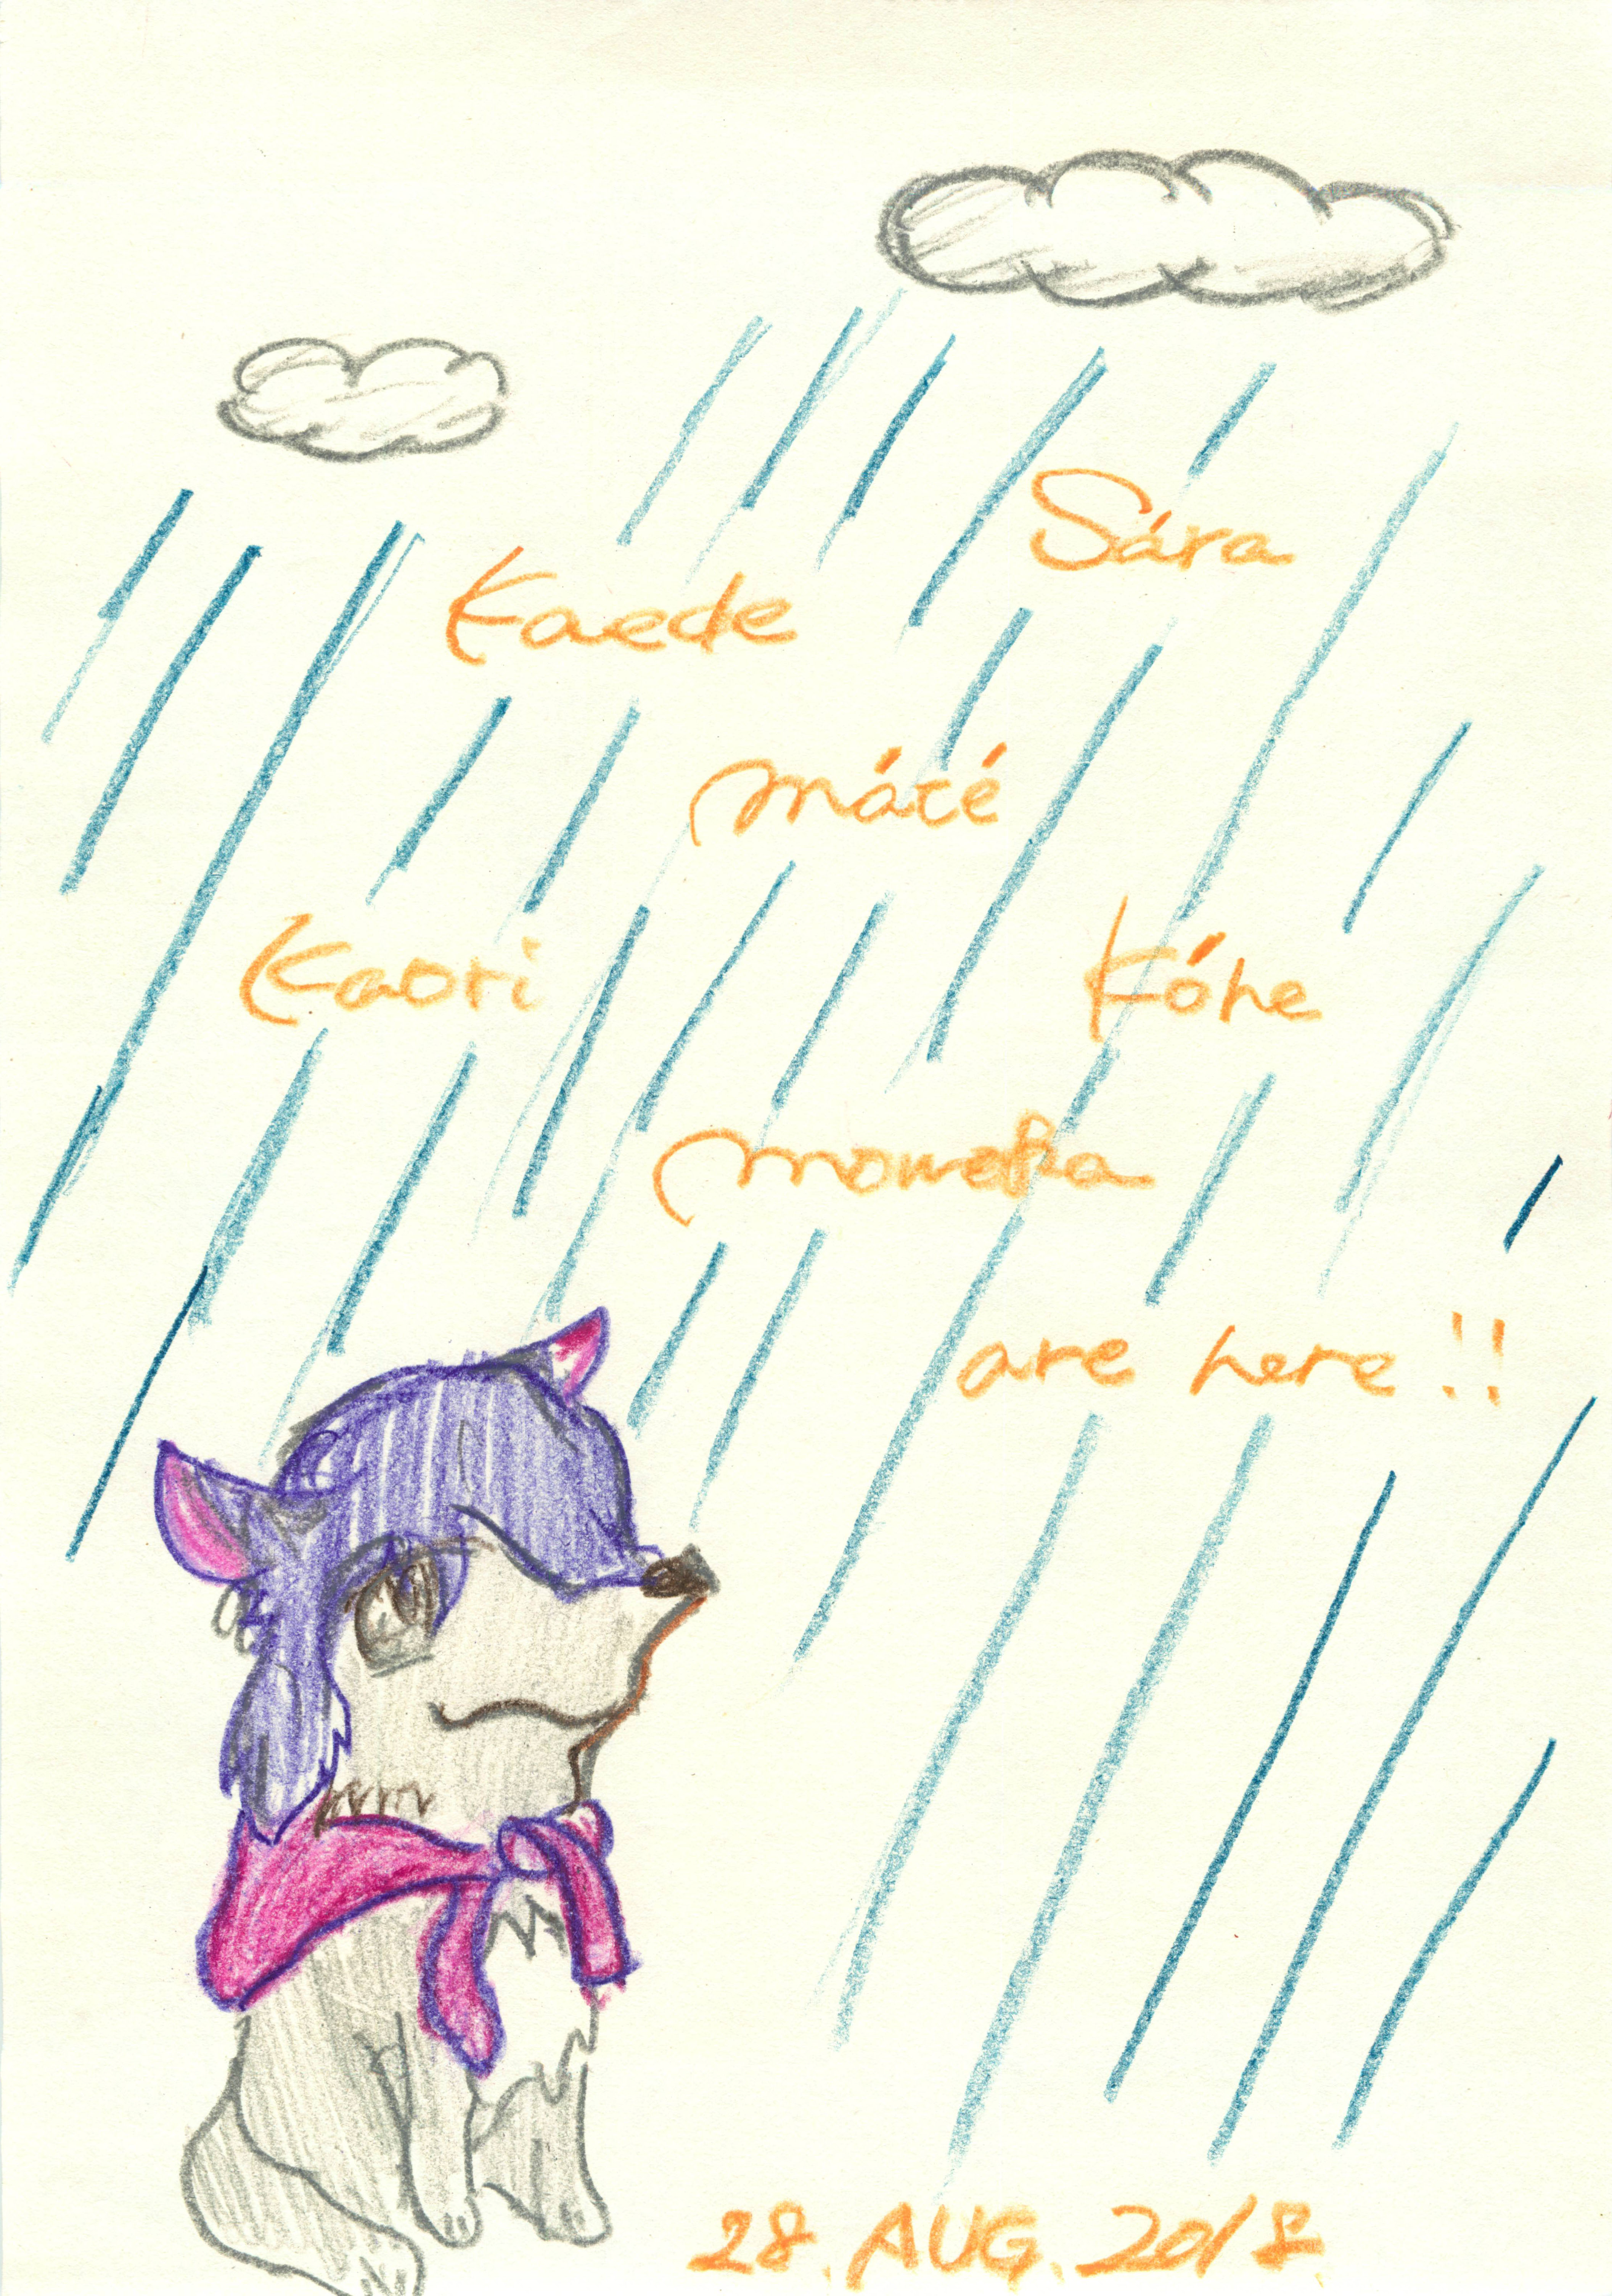 Sára
Kaede
Máté
Kaori
Kóhe
are here!!
28. AUG. 2018.